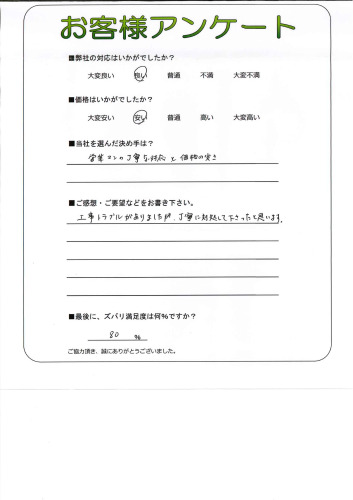 お客様アンケート
■弊社の対応はいかがでしたか？
大変良い 良い 普通 不満 大変不満
■価格はいかがでしたか？
大変安い 安い 普通 高い 大変高い
■当社を選んだ決め手は？
営業マンの丁寧な対応と価格の安さ
■ご感想・ご要望などをお書き下さい。
工事トラブルがありましたが、丁寧に対処して下さったと思います。
■最後に、ズバリ満足度は何％ですか？
80 ％
ご協力頂き、誠にありがとうございました。